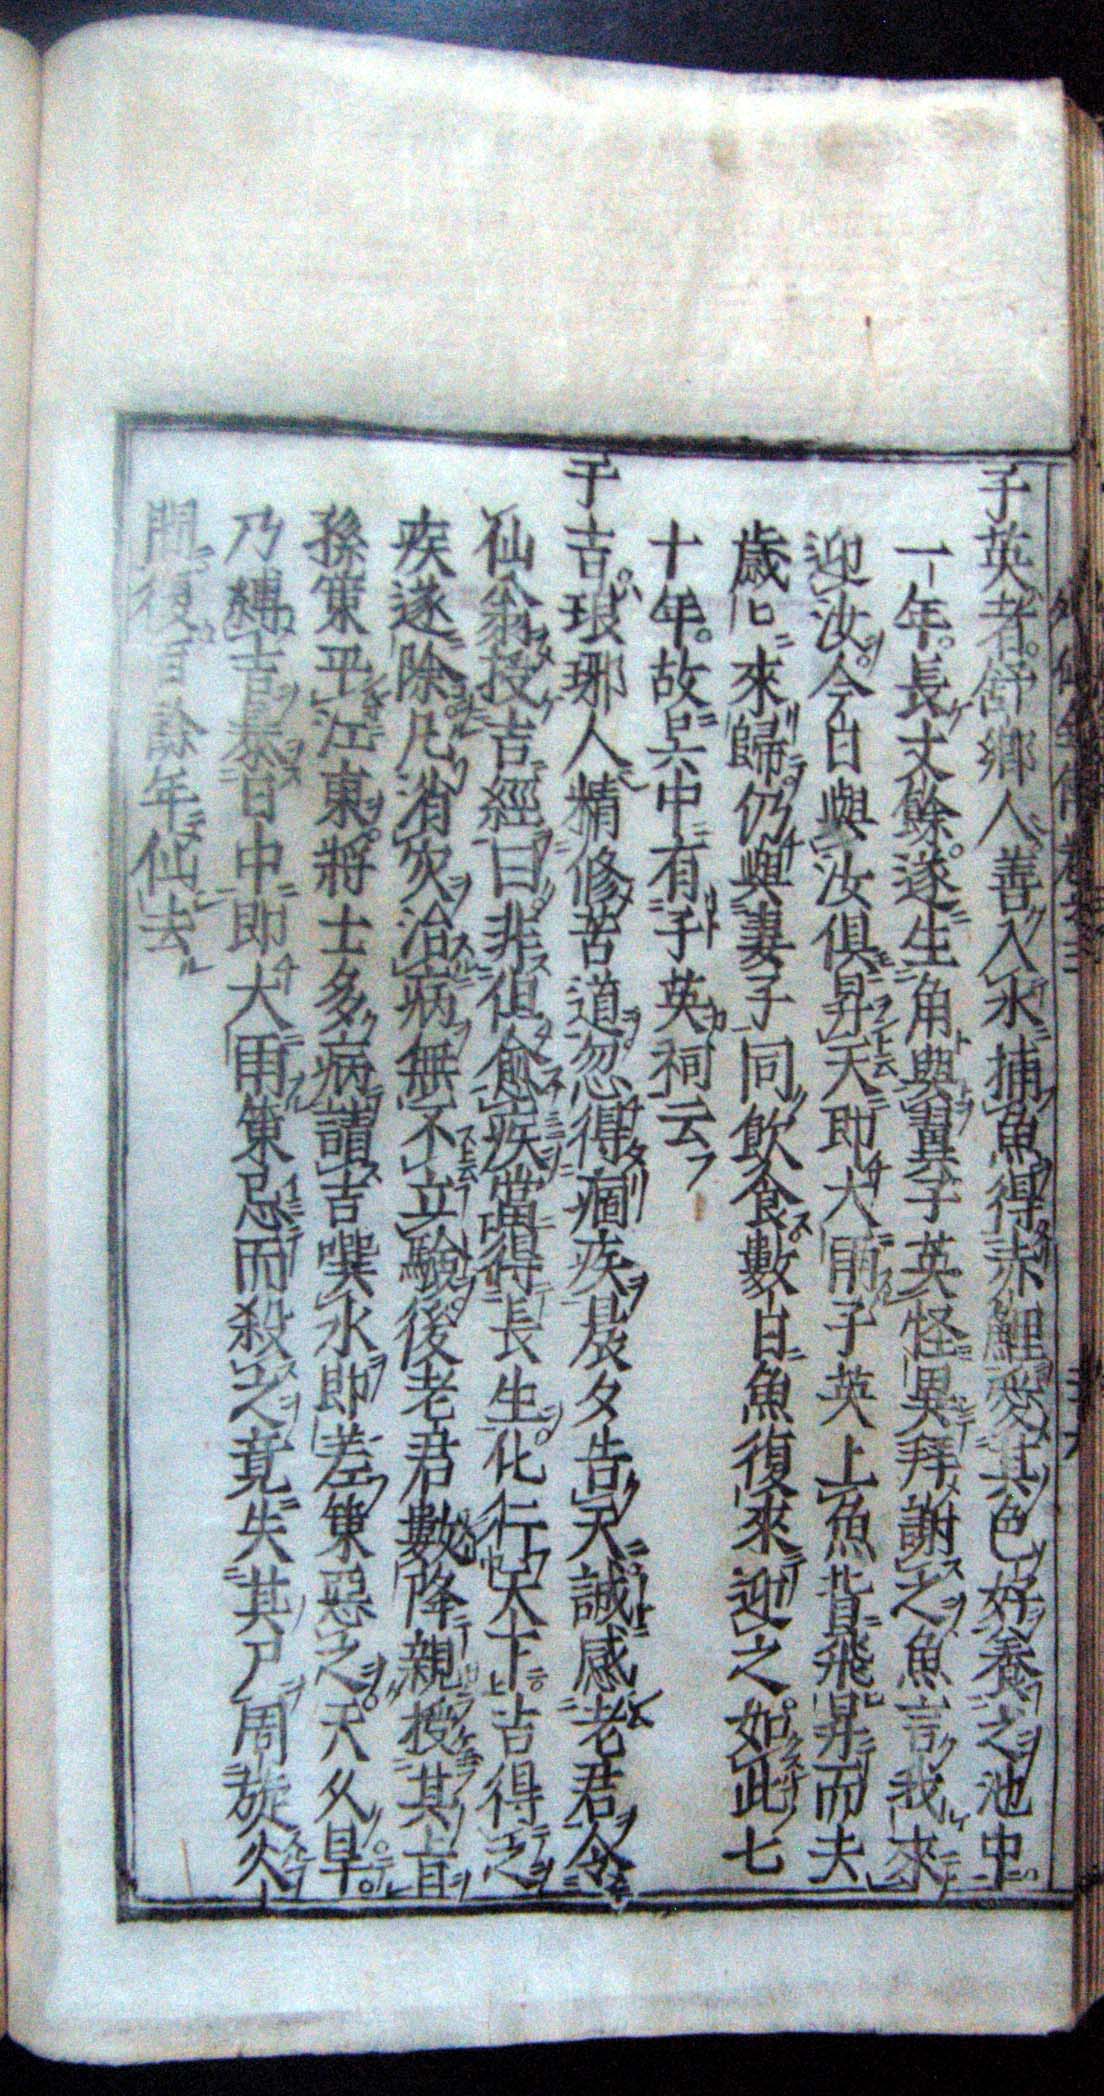 子英者舒鄉人善入水捕魚得赤鯉愛其色好養之池中
一年長丈餘遂生角與翼子英怪異拜謝之魚言我來
迎汝今日與汝俱昇天即大雨子英上魚背飛昇而去
歲已來歸仍與妻子同飲食數日魚復來迎之如此七
十年故吳中有子英祠云
于吉琅琊人精修苦道忽得痼疾晨夕告天誠感老君令
仙翁授吉經曰非但愈疾當得長生化行天下吉得之
疾遂除凡消災治病無不立驗後老君數降親授其旨
孫策平江東將士多病請吉噀水即差策惡之天久旱
乃縛吉暴日中即大雨策忌而殺之竟失其尸周旋人
間復百餘年仙去